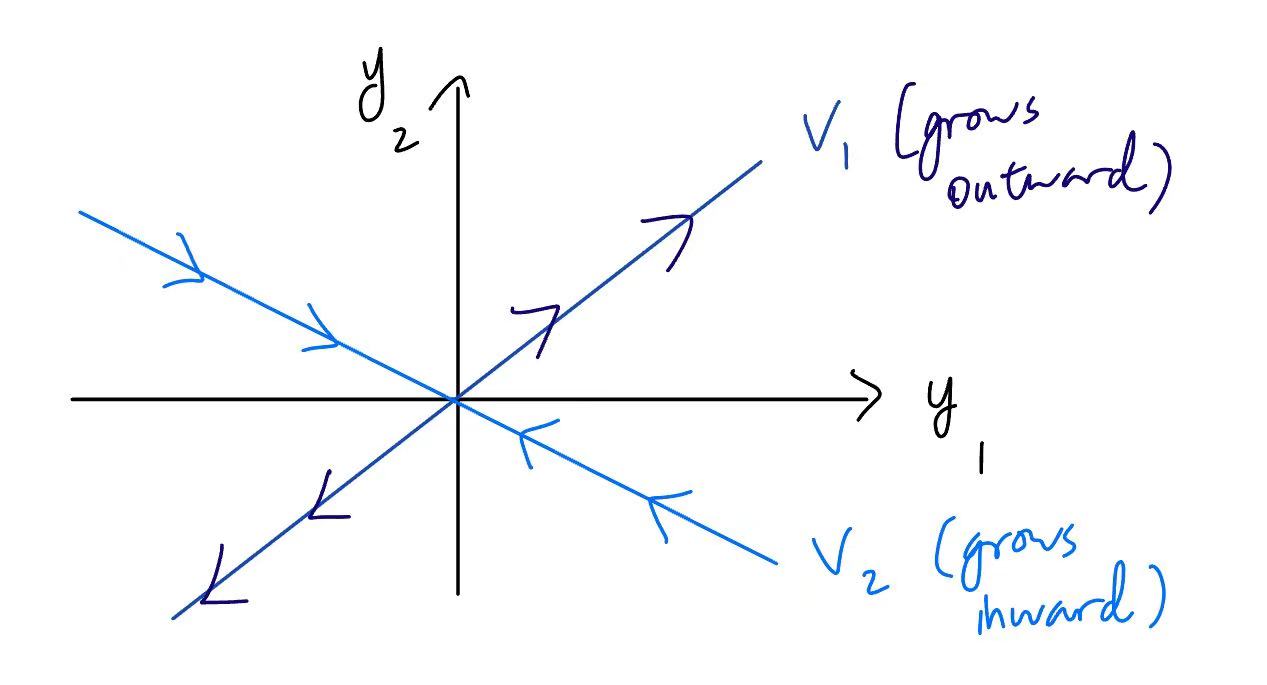 y2
V1 (grows
outward)
y1
V2 (grows
inward)